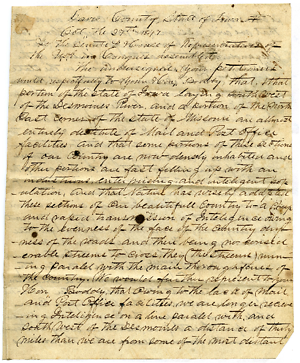 Davis County, State of Iowa
Oct. the 29th 1847
To the Senate & House of Representatives of the
in Congress assembled
The undersigned your petitioners
would respectfully to your Hon. Body, that that
portion of the State of Iowa laying South West
of the Desmoines River, and a portion of the North
East corner of the State of Missouri are almost
entirely destitute of Mail and Post Office
facilities and that some portions of these sections
of our Country are now densely inhabited and
other portions are fast filling up with an
industrious enterprising and intelligent pop-
ulation and that Nature has wisely adapted
these sections of our beautifull Country to a
and rapid transmission of Intelligence owing
to the evenness of the face of the Country dry-
ness of the roads and there being no consid-
erable streams to cross they (the streams) run-
ning parallel with the main thoroughfares of
the Country. We would further represent to your
Hon. Body, that owing to the lack of Mail
and Post Office facilities we are longer receiv-
ing Intelligence on a line parallel with and
South West of the Desmoines a distance of thirty
miles than we are from some of the most distant